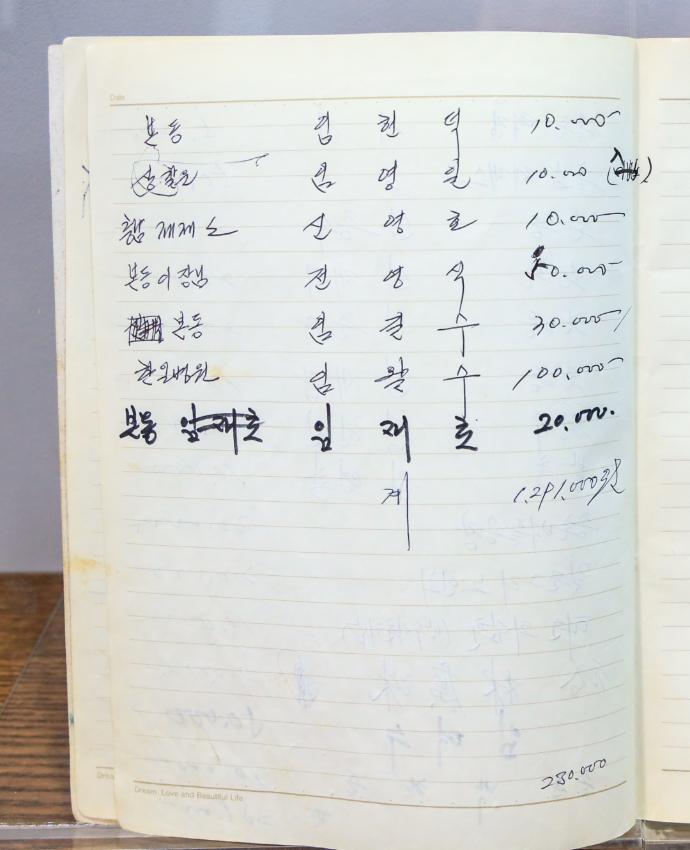 Date
본동 엄 현 덕 10.000
엄 영 일 10.000
제재소 신 영 호 10.000
본동이장님 전 영 식 50.000
본동 엄 수 30.000
한일병원 엄 수 100.000
본동 임 재 호 20.000.
계 1.291.000원
230.000
Dream, Love and Beautiful Life